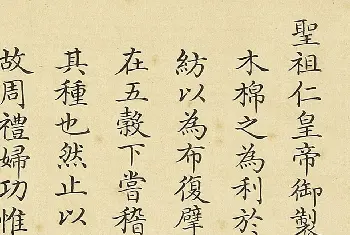 聖祖仁皇帝御製
木棉之為利於
紡以為布復擘
在五穀下嘗稽
其種也然止以
故周禮婦功惟